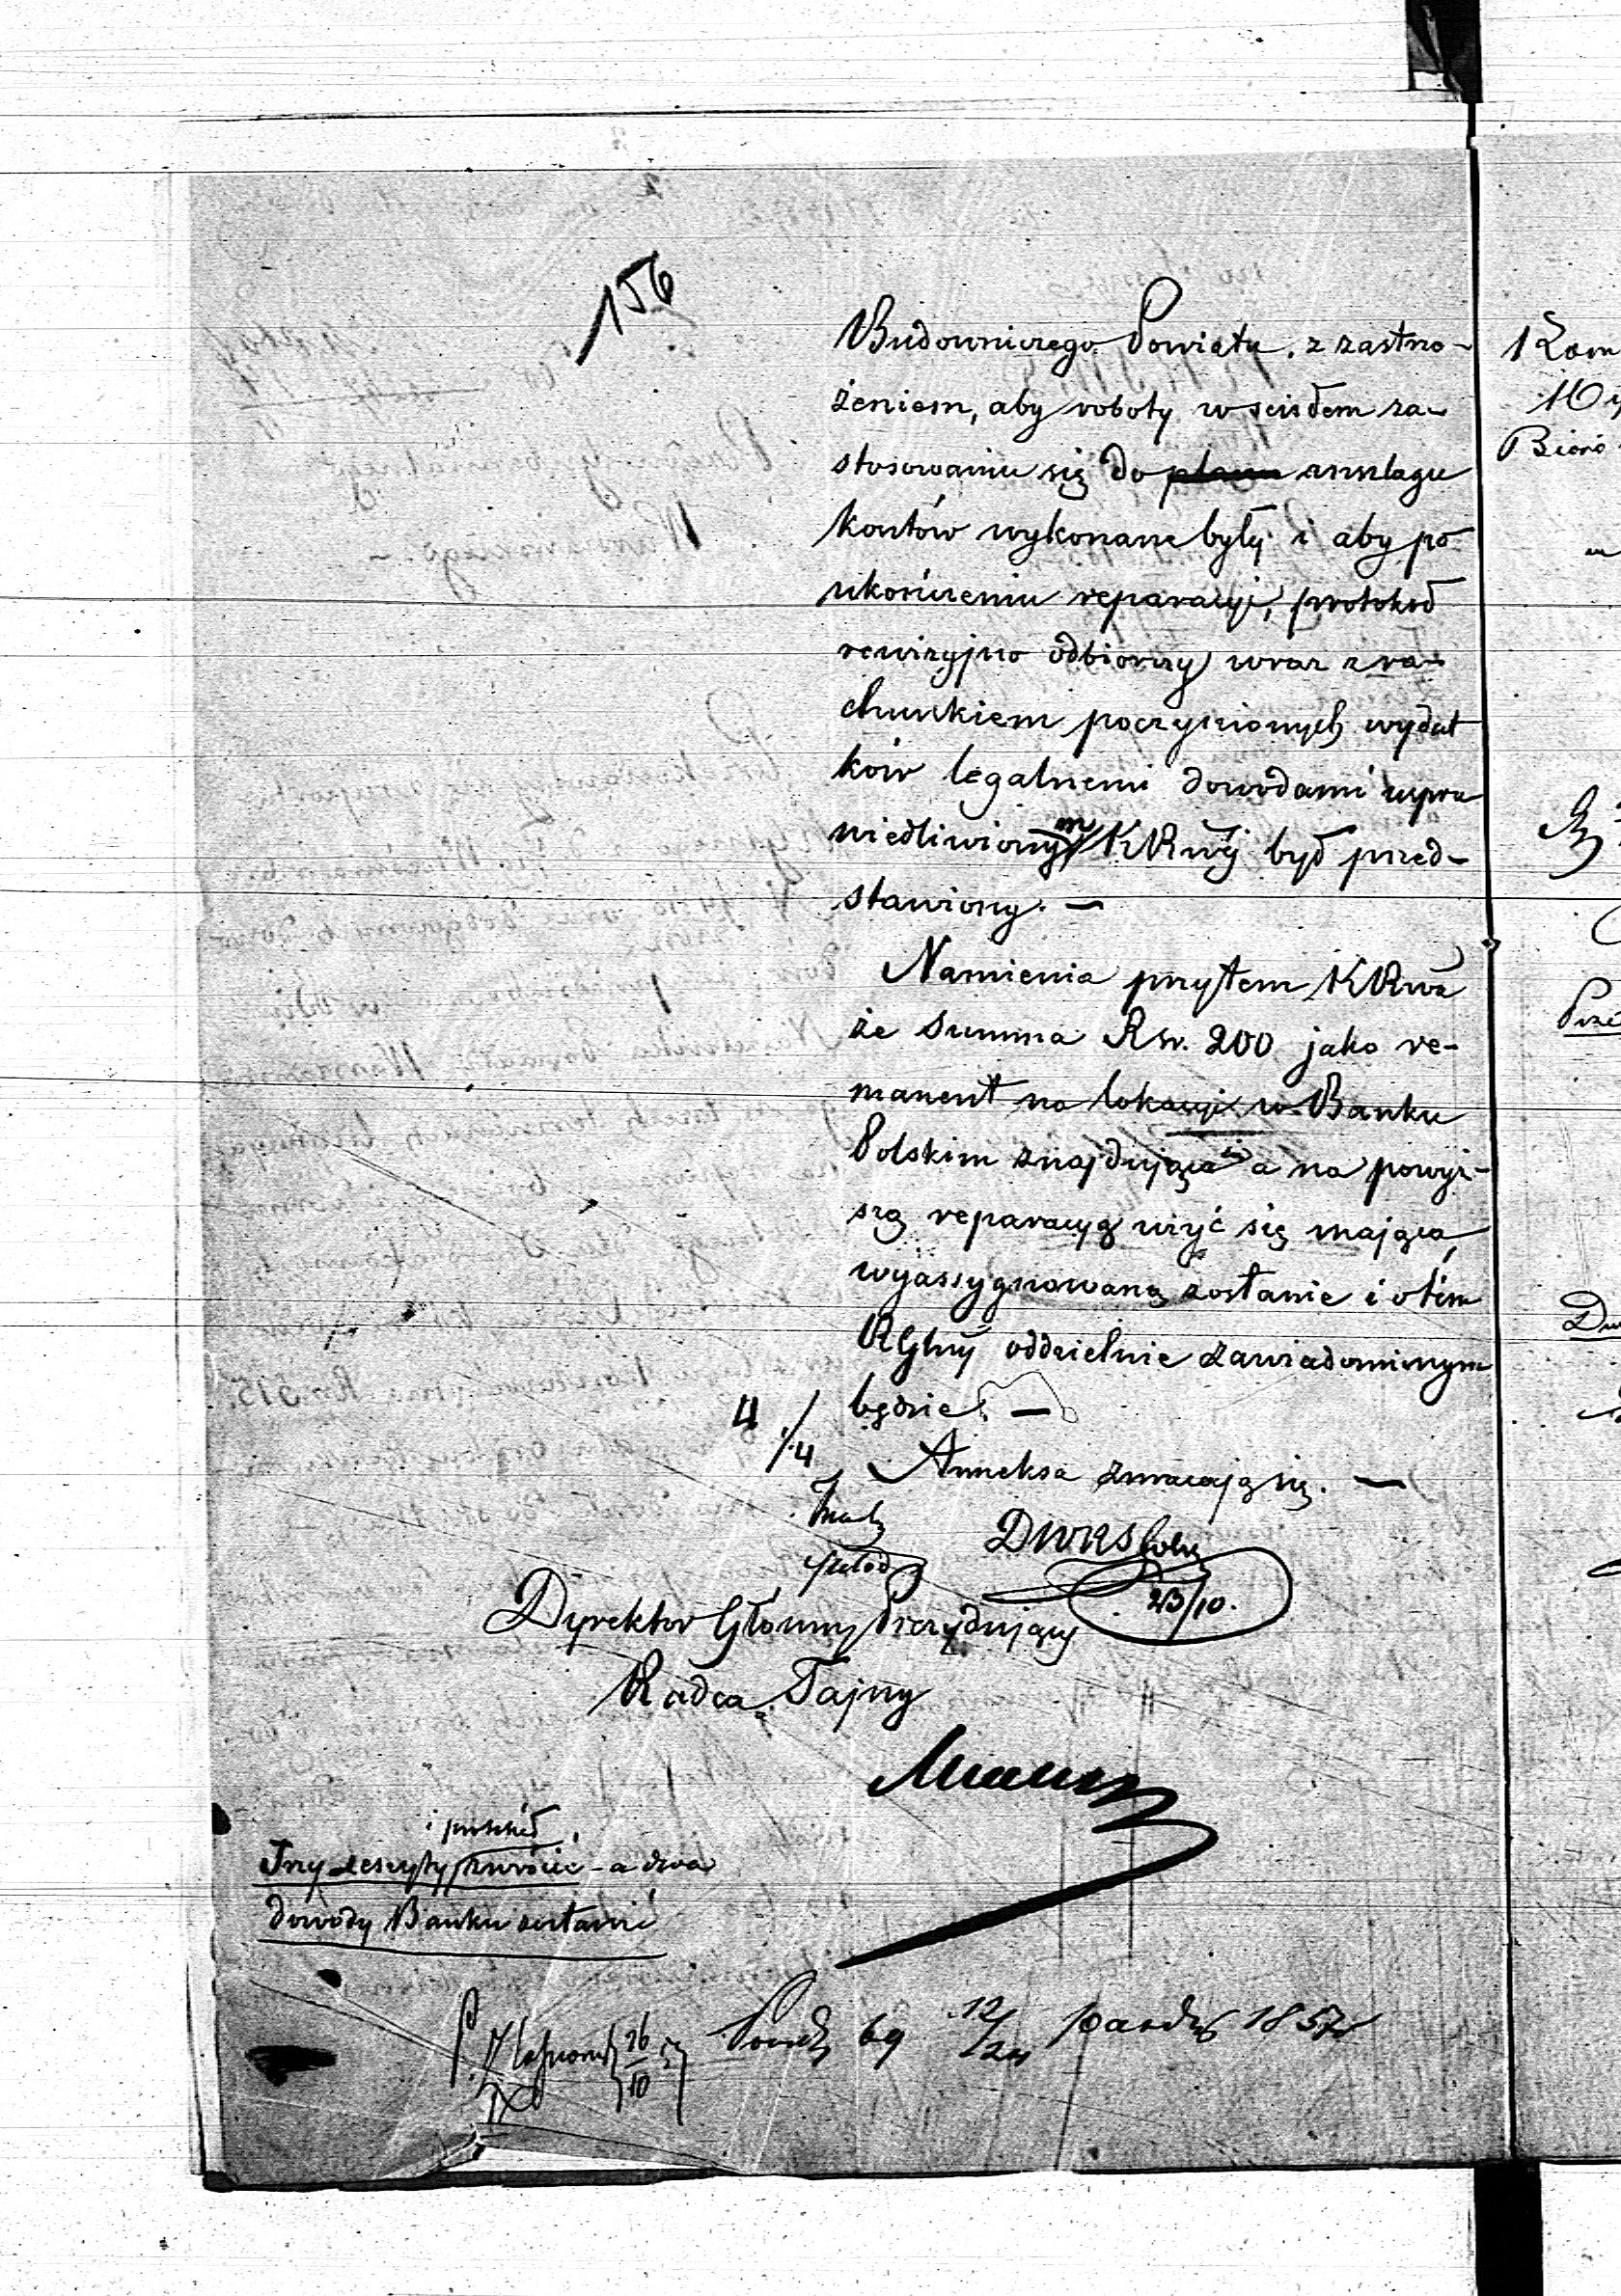 156
Budowniczego Powiatu, z zastrze-
żeniem, aby roboty w scisłem za-
stosowaniu się do planu anszlagu
kosztów wykonane były i aby po
ukończeniu reparacyi, protokoł
rewizyjno odbiorczy wraz z ra-
chunkiem poczynionych wydat
ków legalnemi dowodami uspra
wiedliwionym KRwéj był przed-
stawiony. —
Namienia przytem KRwa
że Summa Rsr. 200 jako re-
manent na lokacyi w Banku
Polskim znajdująca się a na powyż-
szą reparacyą użyć się mająca,
wyassygnowaną zostanie i o tém
RGlny oddzielnie zawiadomionym
będzie. —
4 /.4
Anneksa zwracają się. —
DWRS
23/10.
Dyrektor Główny Prezydujący
Radca Tajny
i protokół
Trzy zeszyty zwrócić - a dwa
dowody Banku zostawić
26/10 57
69 12/24 Paźdz 1857 r
1
10